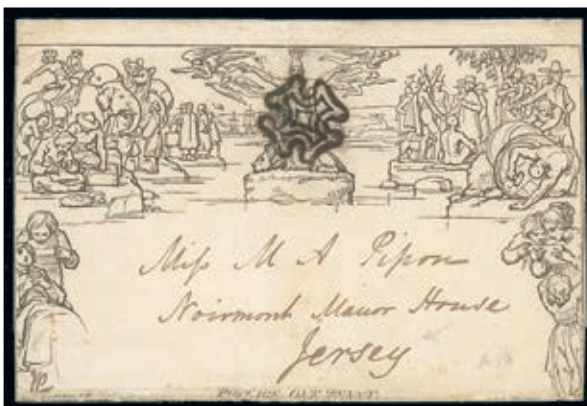 Miss M A Pipon
Noirmont Manor House
Jersey
POSTAGE ONE PENNY